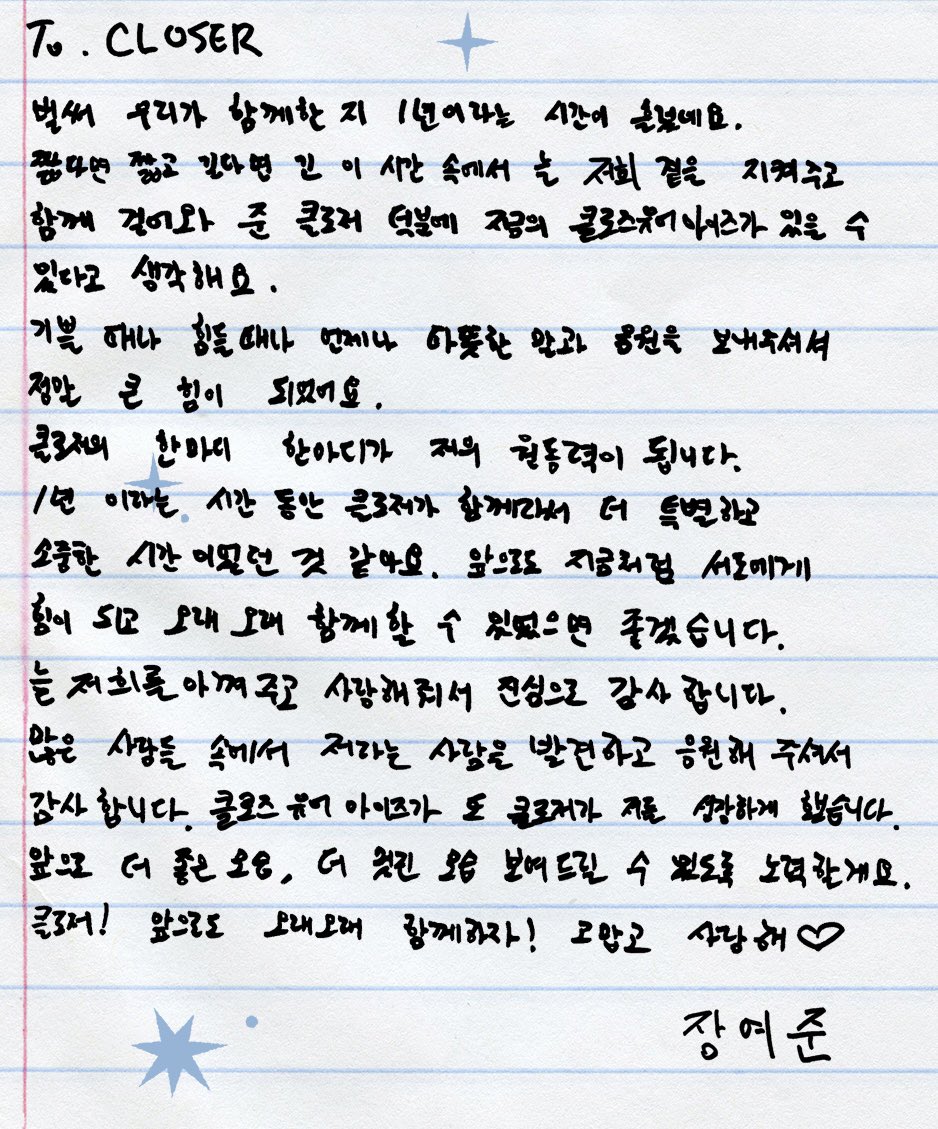 To. CLOSER
벌써 우리가 함께한 지 1년이라는 시간이 흘렀네요.
짧다면 짧고 길다면 긴 이 시간 속에서 늘 저희 곁을 지켜주고
함께 걸어와 준 클로저 덕분에 지금의 클로즈유어아이즈가 있을 수
있다고 생각해요.
기쁠 때나 힘들때나 언제나 따뜻한 말과 응원을 보내주셔서
정말 큰 힘이 되었어요.
클로저의 한마디 한마디가 저의 원동력이 됩니다.
1년 이라는 시간 동안 클로저가 함께라서 더 특별하고
소중한 시간이었던 것 같아요. 앞으로도 지금처럼 서로에게
힘이 되고 오래 오래 함께할 수 있었으면 좋겠습니다.
늘 저희를 아껴주고 사랑해줘서 진심으로 감사합니다.
많은 사람들 속에서 저라는 사람을 발견하고 응원해 주셔서
감사합니다. 클로즈 유어 아이즈가 또 클로저가 저를 성장하게 했습니다.
앞으로 더 좋은 모습, 더 멋진 모습 보여드릴 수 있도록 노력할게요.
클로저! 앞으로도 오래오래 함께하자! 고맙고 사랑해♡
장여준